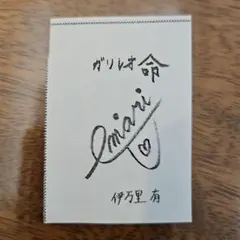 ガリレオ命
emari
伊万里有